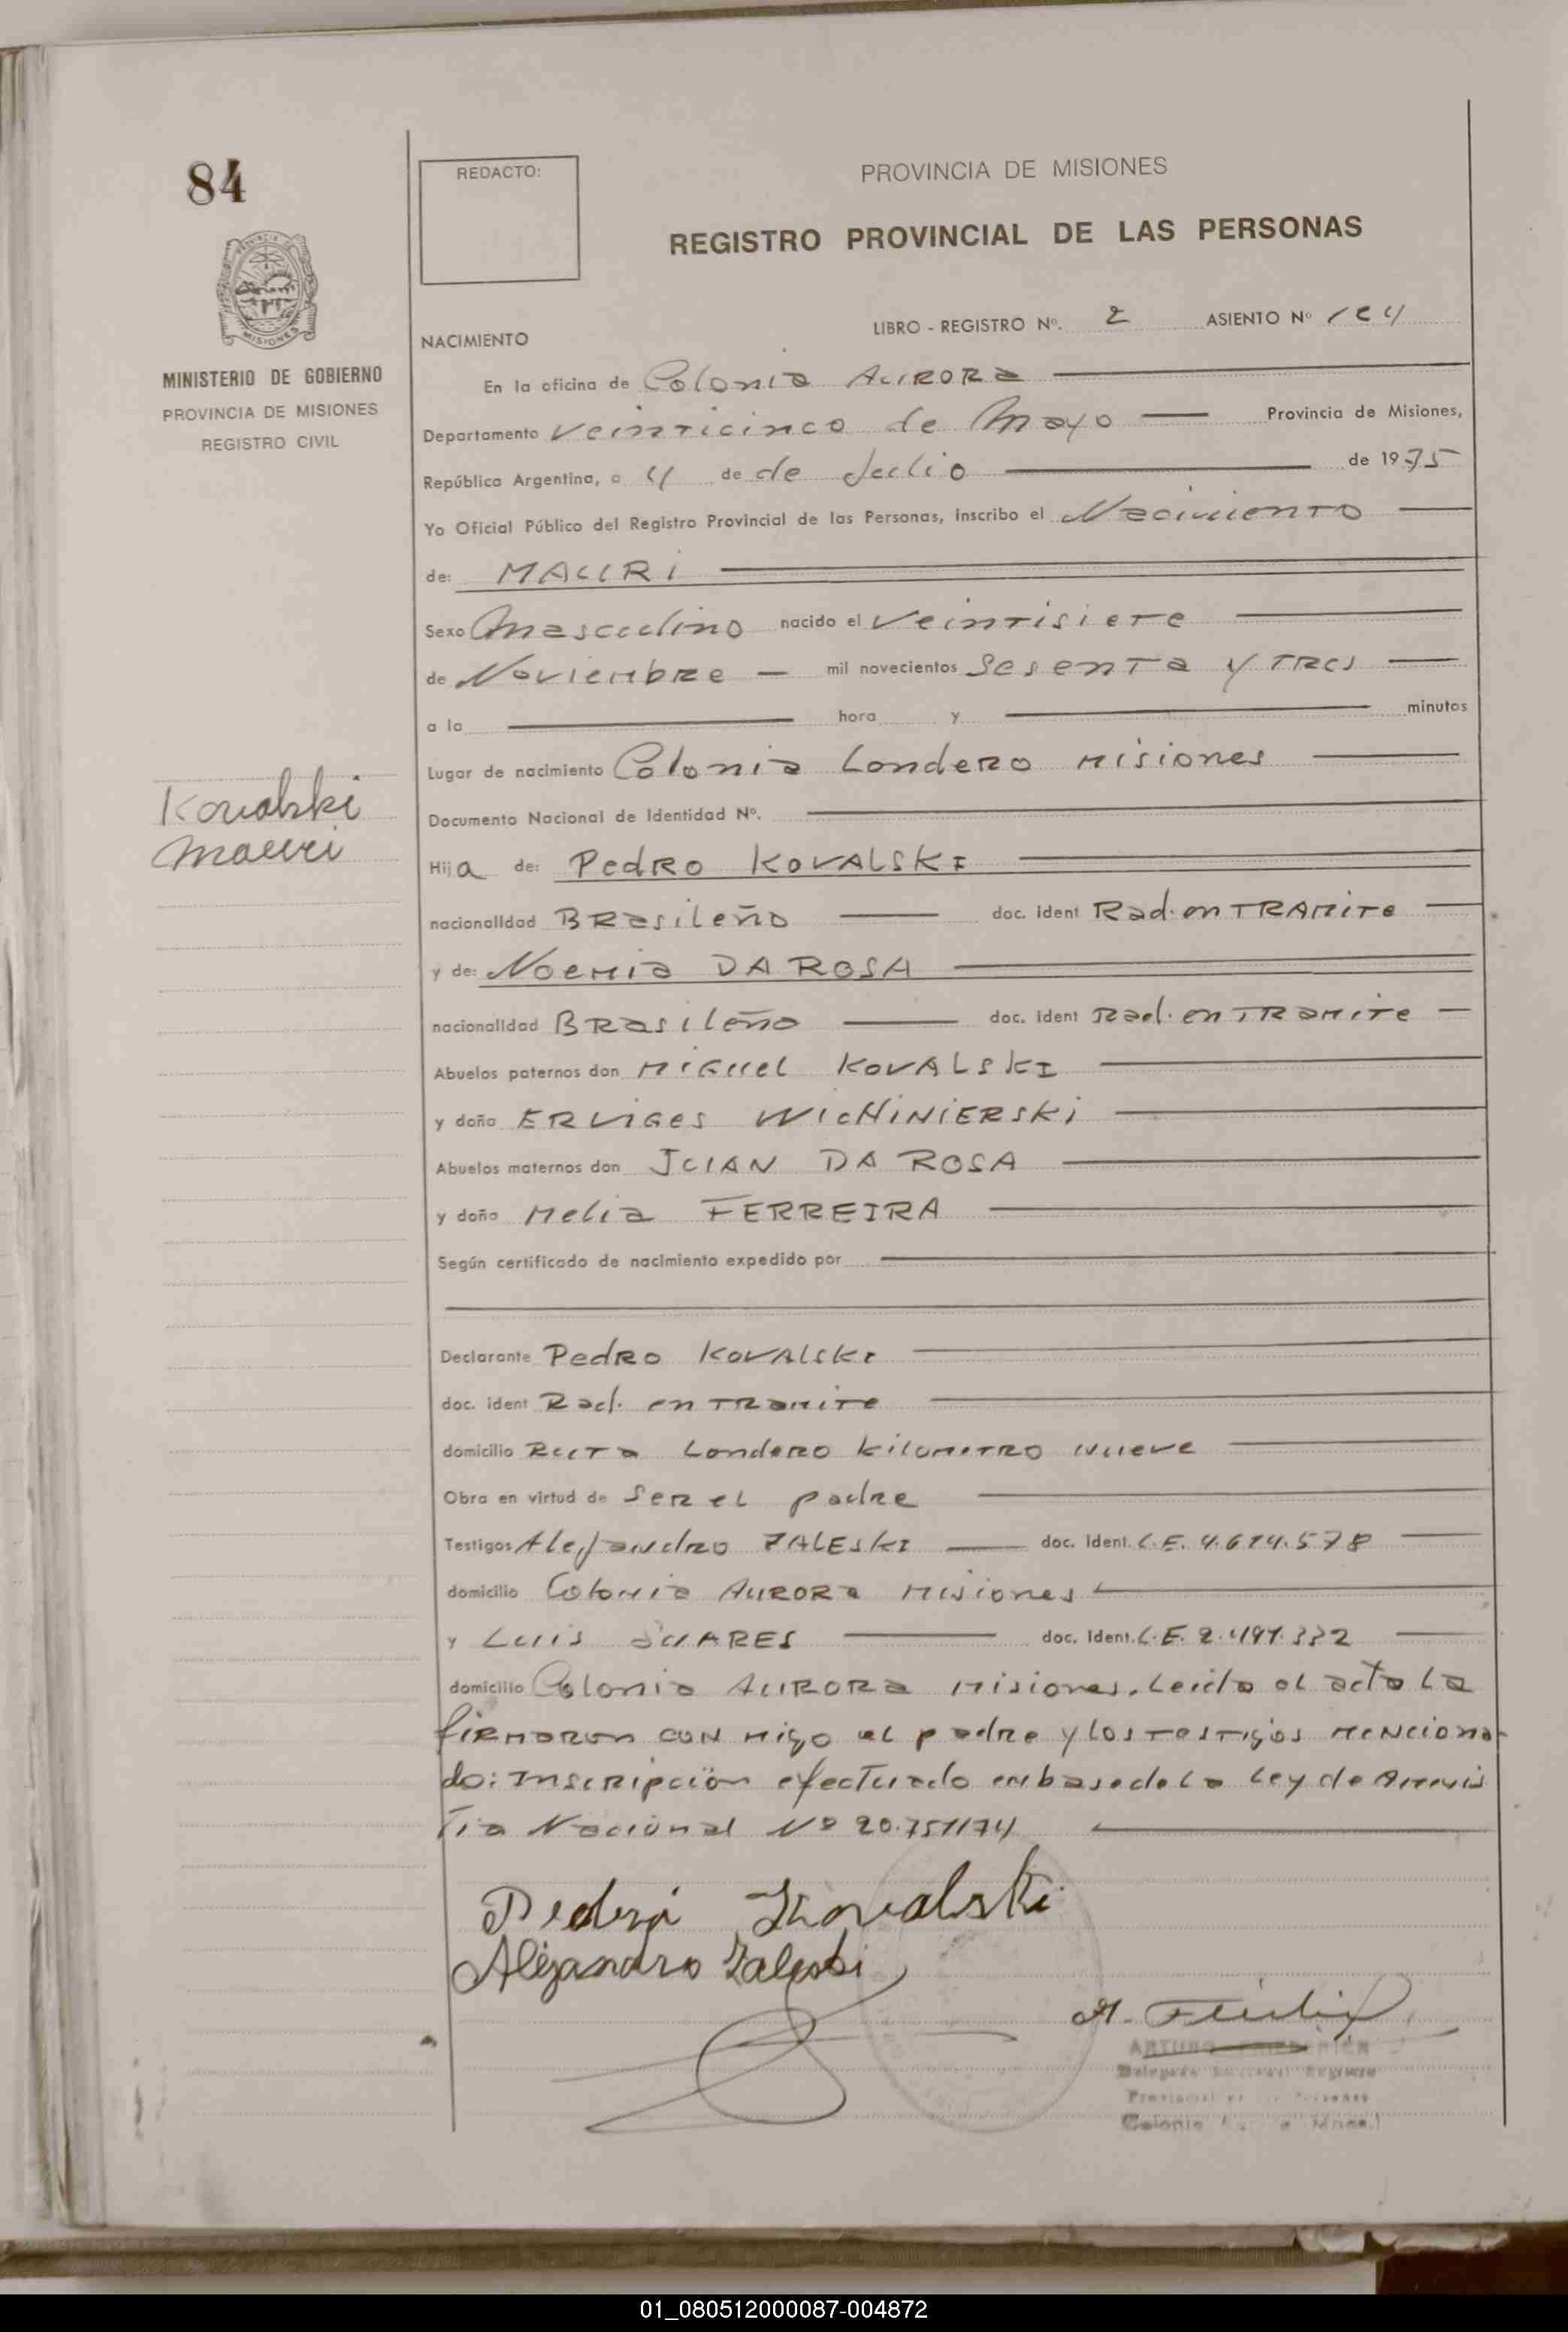 84
REDACTO:
PROVINCIA DE MISIONES
REGISTRO PROVINCIAL DE LAS PERSONAS
MISIONES
MINISTERIO DE GOBIERNO
PROVINCIA DE MISIONES
REGISTRO CIVIL
NACIMIENTO LIBRO - REGISTRO Nº. 2 ASIENTO Nº
En la oficina de Colonia AURORa
Departamento Veinticinco de Mayo Provincia de Misiones,
República Argentina, a 4 de de Julio de 1975
Yo Oficial Público del Registro Provincial de las Personas, inscribo el Nacimiento
de: MAURI
Sexo Masculino nacido el Veintisiete
de Noviembre mil novecientos Sesenta y TRes
a la hora y minutos
Lugar de nacimiento Colonia Londero Misiones
Kovalski
Mauri
Documento Nacional de Identidad Nº.
Hija de: Pedro KOVALSKI
nacionalidad BRasileño doc. ident Rad. en TRAMite
y de: Noemia DA ROSA
nacionalidad BRasileño doc. ident Rad. en TRamite
Abuelos paternos don Miguel KOVALSKI
y doña ERViGes WICHINIERSKi
Abuelos maternos don JUAN DA ROSA
y doña Melia FERREIRA
Según certificado de nacimiento expedido por
Declarante Pedro KOVALSKI
doc. ident Rad. en TRamite
domicilio Ruta Londero kilometro nueve
Obra en virtud de Ser el padre
Testigos Alejandro ZALESKI doc. ident. C.E. 4.614.578
domicilio Colonia AURORa Misiones
y Luis SUARES doc. Ident. C.E.
domicilio Colonia AURORa Misiones. Leida el acta La
firmaron con migo el padre y los testigos menciona-
do: Inscripción efectuado en base de La Ley de Amnis
Tia Nacional Nº 20.751/74
Pedro Kovalski
Alejandro Zaleski
ARTURO
Colonia
01_080512000087-004872